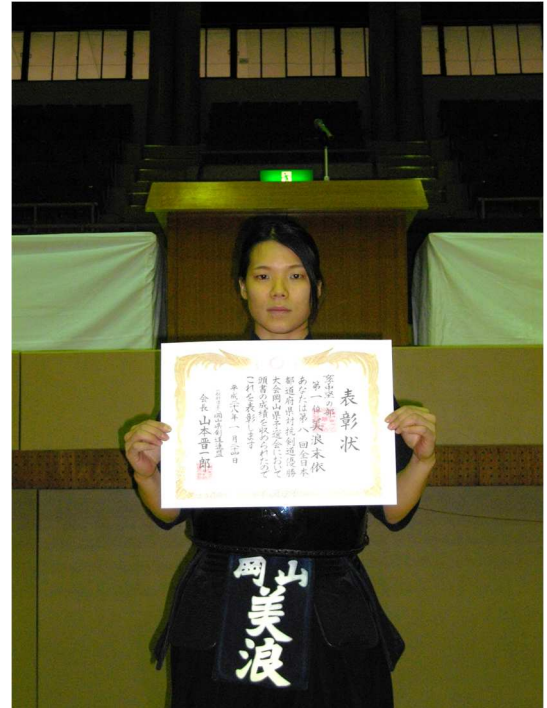 表彰状
第一位 美浪未依
あなたは第八回全日本
都道府県対抗剣道優勝
大会岡山県予選会において
頭書の成績を収められたので
これを表彰します
平成二八年一月二四日
岡山県剣道連盟
会長 山本晋一郎
岡山
美浪